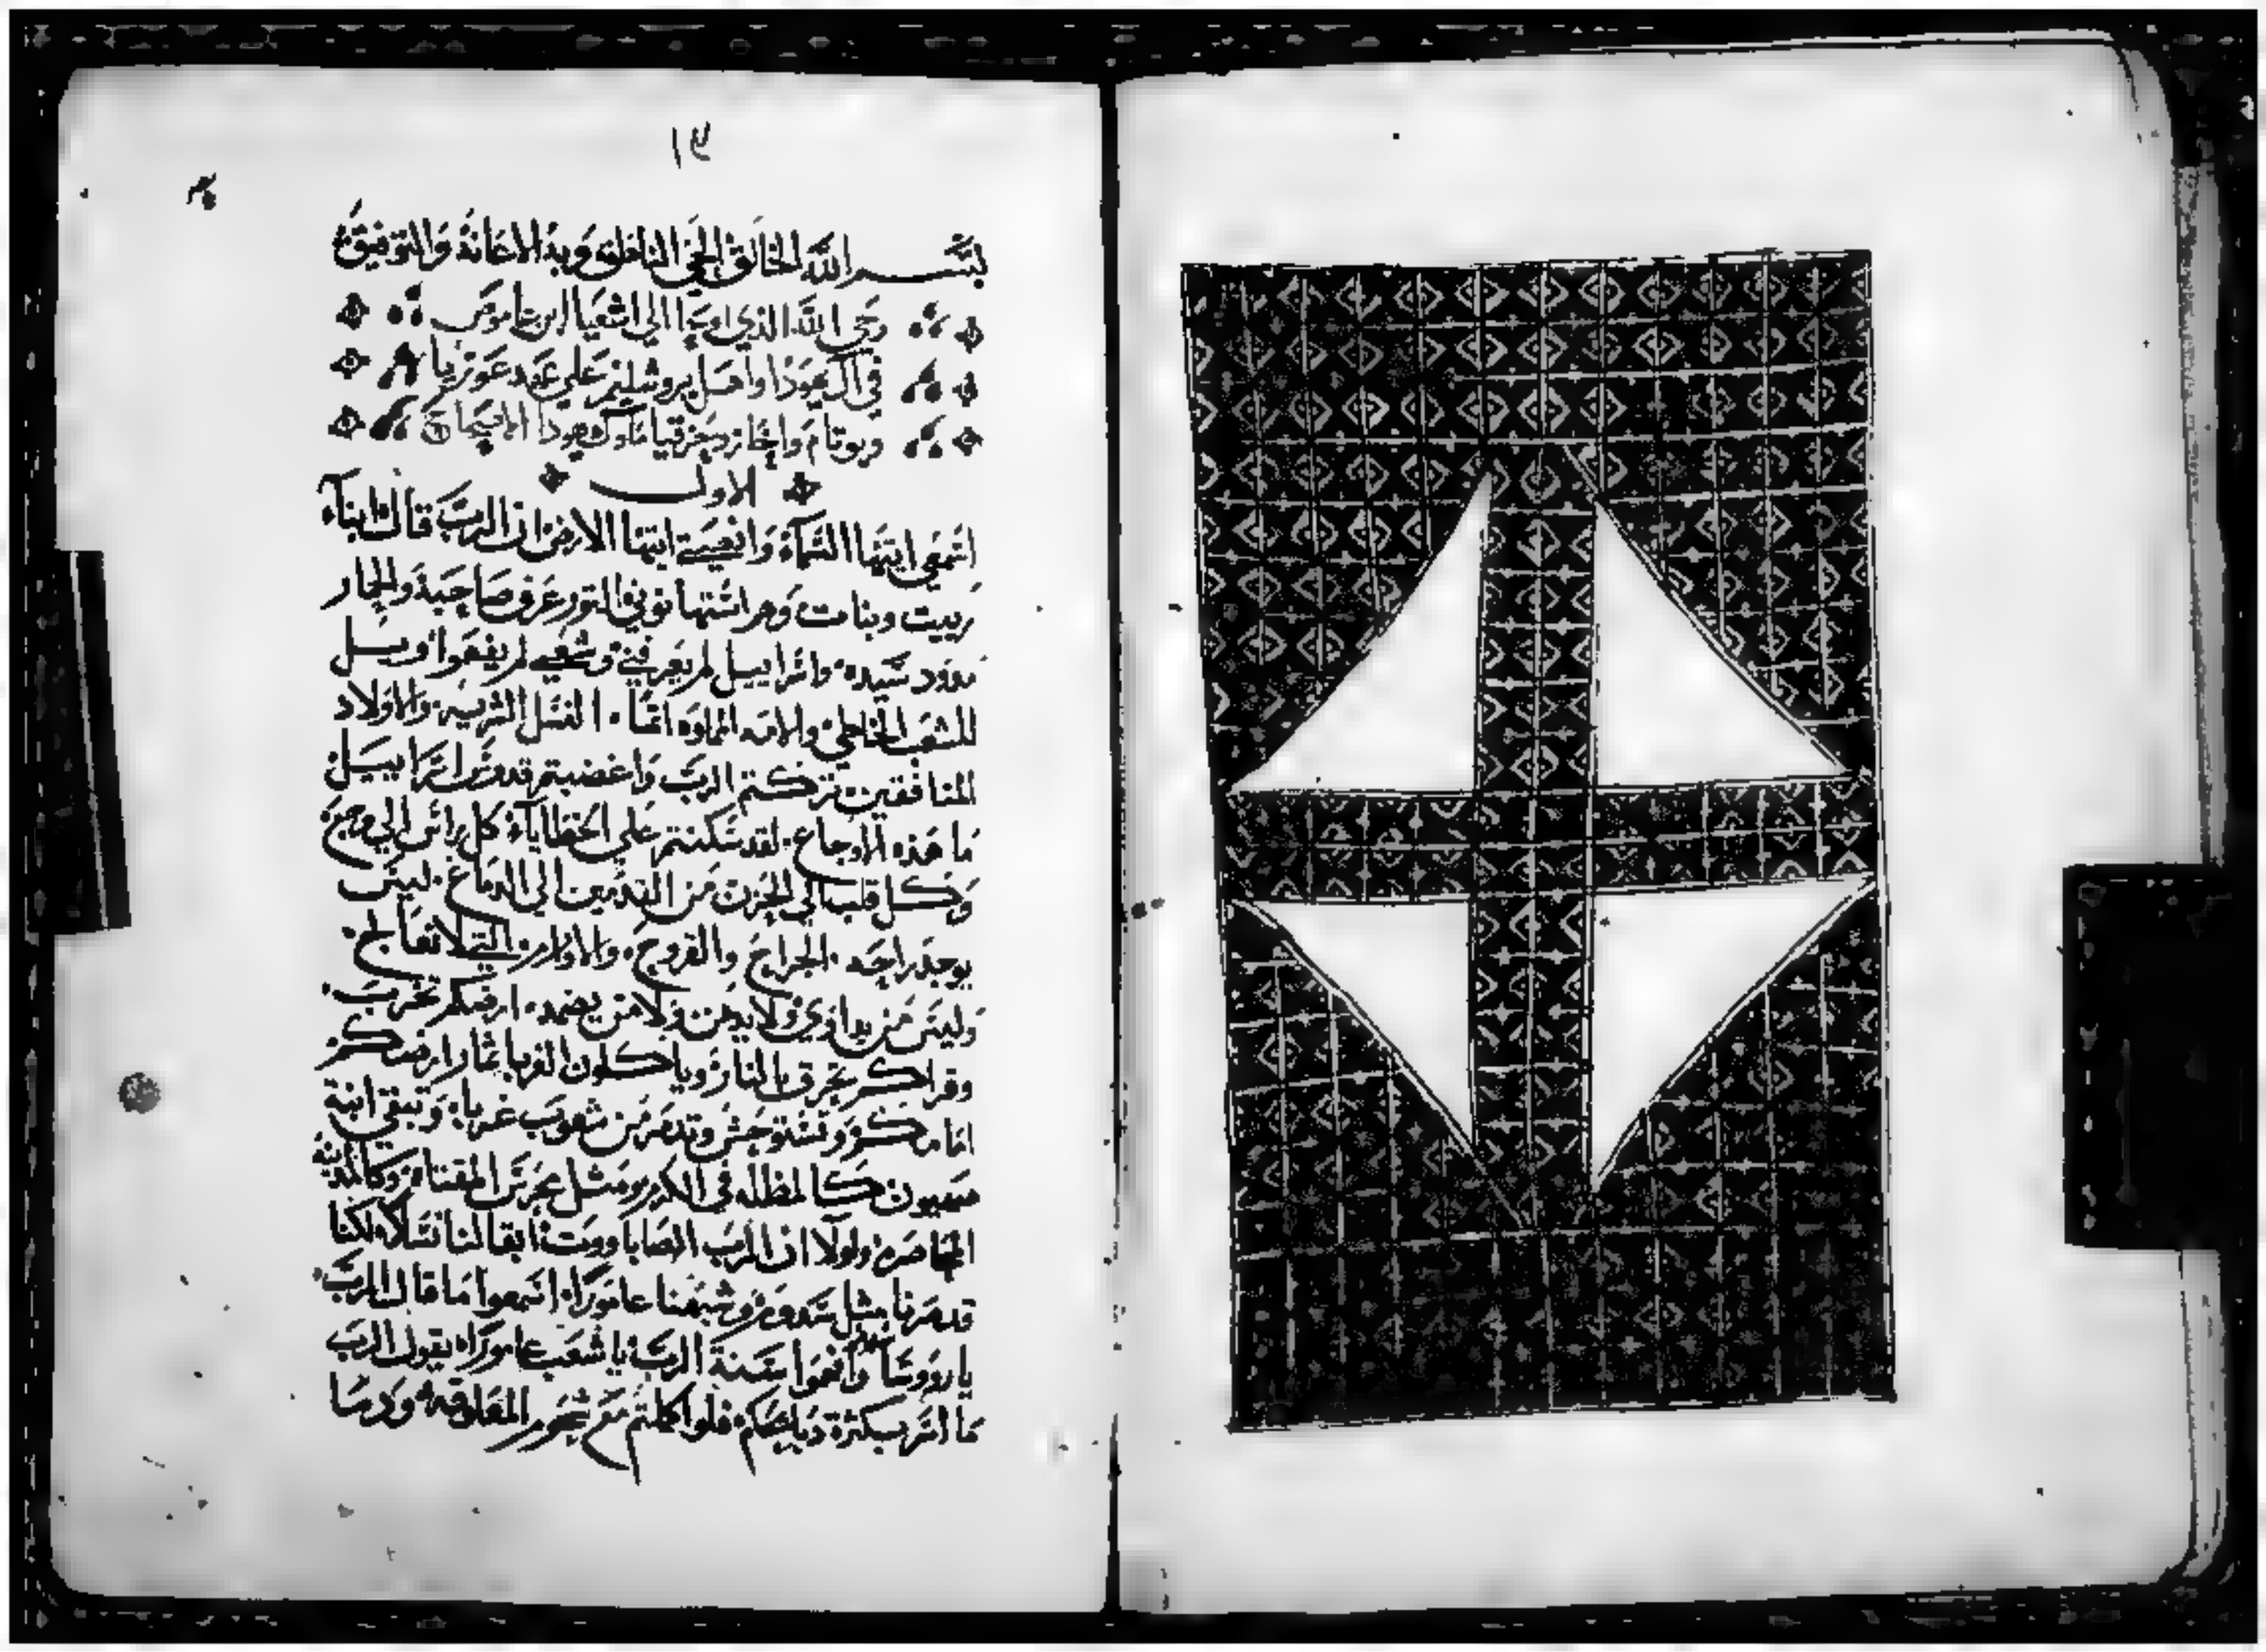 بسم الله الخالق الحي الناطق وبه الاعانة والتوفيق
وحي الله الذي اوحا الي اشعيا ابن عاموص
في ال يهودا واهل يروشليم علي عهد عوزيا
ويوتام واحاز وحزقيا ملوك يهودا الاصحاح
الاول
اسمعي ايتها السماء وانصتي ايتها الارض ان الرب قال ابناء
ربيت وبنات وهم اشتهانوني الثور عرف صاحبه والحمار
مدود سيده واسراييل لم يعرفني وشعبي لم يفهم الويل
للشعب الخاطي والامه المملوه اثما النسل الشرير والاولاد
المنافقين تركتم الرب واغضبتم قدوس اسراييل
ما هذه الاوجاع لقد سكنتم علي الخطايا كل راس الي وجع
وكل قلب الي الحزن من القدمين الي الدماغ ليس
يوجد راحه الجراح والقروح والاورام التي لا تعالج
وليس من يداوي ولا يدهن ولا من يضمد ارضكم تخرب
وقراكم تحرق بالنار وياكلون الغربا ثمار ارضكم
امامكم وتستوحش وتدمر من شعوب غربا وتبقي ابنة
صهيون كالمظله في الكرم ومثل عرس المقتاه وكالمدينة
المحاصره ولولا ان الرب الصاباووت ابقا لنا نسلا لكنا
قد صرنا مثل سدوم وشبهنا عامورا اسمعوا ما قال الرب
يا رووسا سدوم وافهموا سنة الرب يا شعب عامورا يقول الرب
ما اسر بكثرة ذبايحكم فلو اكلتم مع شحوم المعلوقه ودما